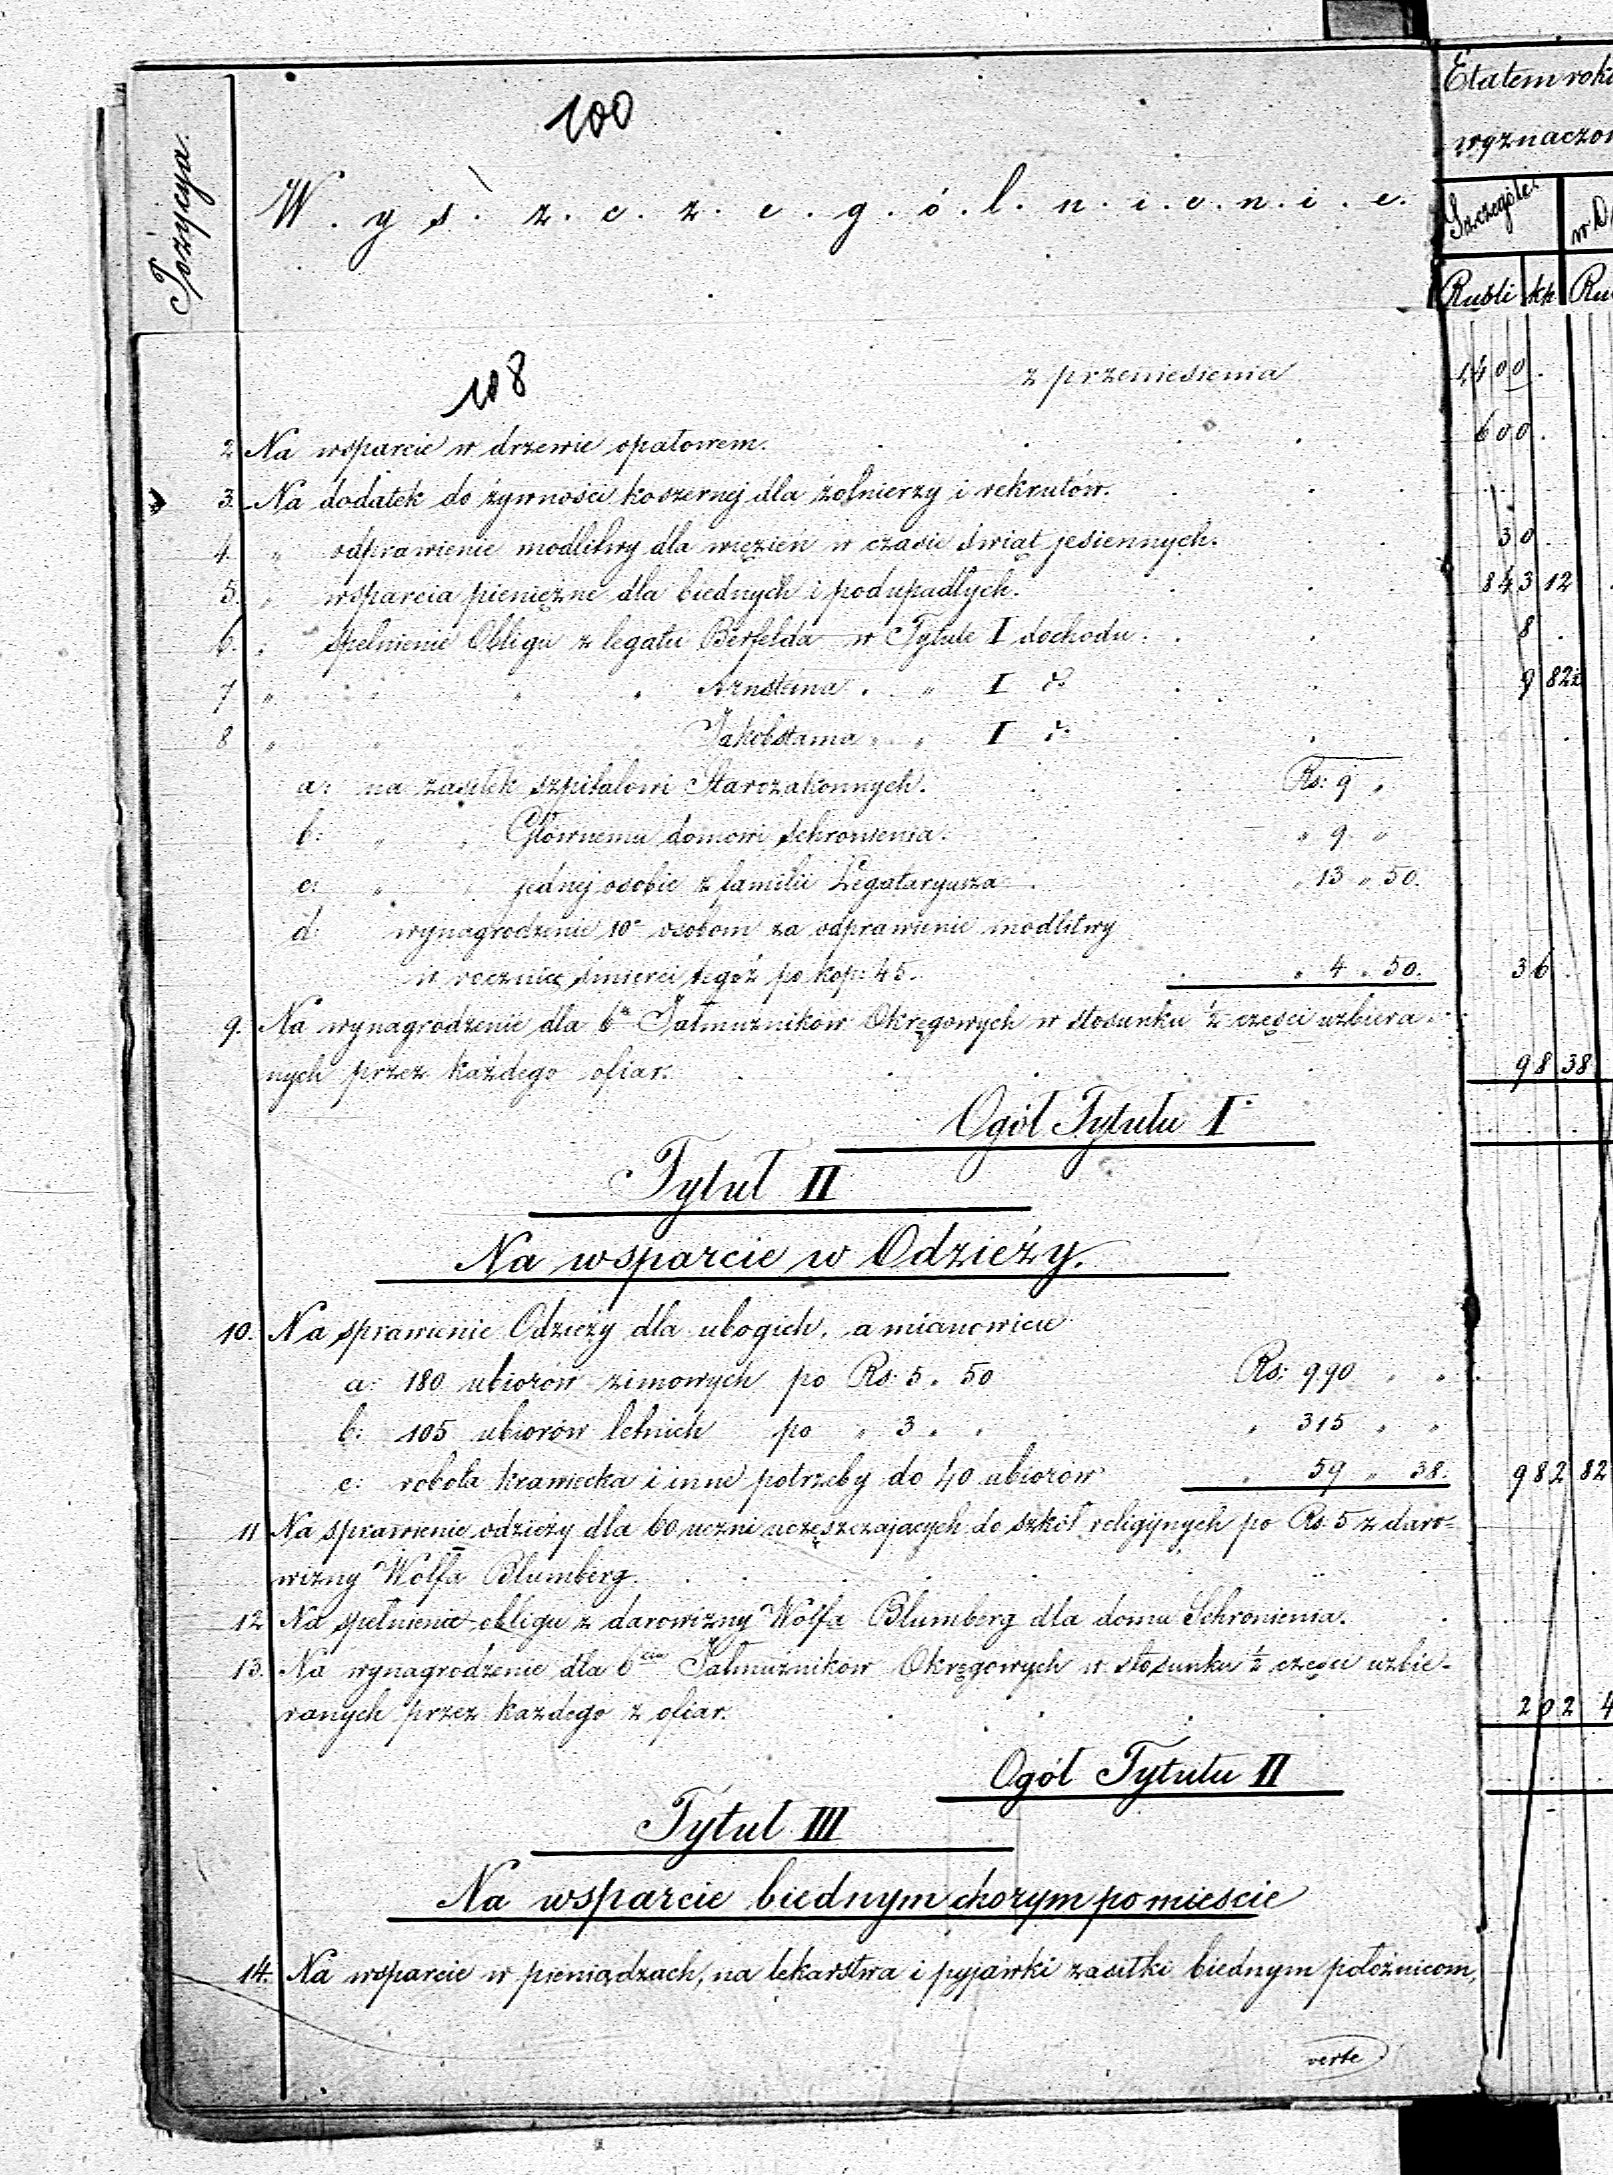 Etatem roku
100
wyznaczon
Pozycya.
W.y.ś.z.c.z.e.g.ó.l.n.i.e.n.i.e.
Szczegóły
w D
Rubli kk Ru
z przeniesienia 1,400.
108
2 Na wsparcie w drzewie opałowem. 600.
3. Na dodatek do żywności koszernej dla żołnierzy i rekrutów.
4. " odprawienie modlitwy dla więzień w czasie świąt jesiennych. 30.
5. " wsparcia pieniężne dla biednych i podupadłych. 843 12
6. " spełnienie Obligu z legatu Berfelda w Tytule I dochodu. 8.
7 " " " " Arnsteina. " I d° 9 82½
8 " " " " Jakobstama " " I d°
a: na zasiłek szpitalowi Starozakonnych. Rs: 9 "
b: " " Głównemu domowi schronienia. " 9 "
c: " " jednej osobie z familii Legataryusza " 13 " 50.
d: wynagrodzenie 10 osobom za odprawienie modlitwy
w rocznicę śmierci tegóż po kop: 45. " 4 " 50. 36.
9. Na wynagrodzenie dla 6 Jałmużników Okręgowych w stosunku ½ części uzbiera-
nych przez każdego ofiar. 98 38
Ogół Tytułu I.
Tytuł II
Na wsparcie w Odzieży.
10. Na sprawienie Odzieży dla ubogich, a mianowicie
a: 180 ubiorów zimowych po Rs. 5 " 50 Rs: 990 " "
b: 105 ubiorów letnich po " 3 " " " 315 " "
c: robota krawiecka i inne potrzeby do 40 ubiorów " 59 " 38. 982 82
11 Na sprawienie odzieży dla 60 uczni uczęszczających do szkół religijnych po Rs. 5 z daro-
wizny Wolfa Blumberg.
12 Na spełnienie obligu z darowizny Wolfa Blumberg dla domu Schronienia.
13. Na wynagrodzenie dla 6ciu Jałmużników Okręgowych w stosunku ½ części uzbie-
ranych przez każdego z ofiar. 202 4
Ogół Tytułu II
Tytuł III
Na wsparcie biednym chorym po mieście
14. Na wsparcie w pieniądzach, na lekarstwa i pyjawki zasiłki biednym położnicom,
verte